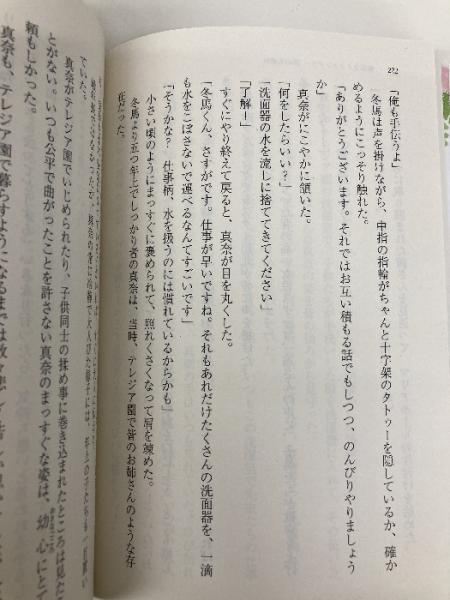 272
「俺も手伝うよ」
冬馬は声を掛けながら、中指の指輪がちゃんと十字架のタトゥーを隠しているか、確か
めるようにこっそり触れた。
「ありがとうございます。それではお互い積もる話でもしつつ、のんびりやりましょう
か」
真奈がにこやかに頷いた。
「何をしたらいい？」
「洗面器の水を流しに捨ててきてください」
「了解！」
すぐにやり終えて戻ると、真奈が目を丸くした。
「冬馬くん、さすがです。仕事が早いですね。それもあれだけたくさんの洗面器を、一滴
も水をこぼさないで運べるなんてすごいです」
「そうかな？　仕事柄、水を扱うのには慣れているからかも」
小さい頃のようにまっすぐに褒められて、照れくさくなって肩を竦めた。
冬馬より五つ年上でしっかり者の真奈は、当時、テレジア園で皆のお姉さんのような存
在だった。
でいた。
真奈がテレジア園でいじめられたり、子供同士の揉め事に巻き込まれたところは見た
とがない。いつも公平で曲がったことを許さない真奈のまっすぐな姿は、幼心にとて
頼もしかった。
真奈も、テレジア園で暮らすようになるまでは